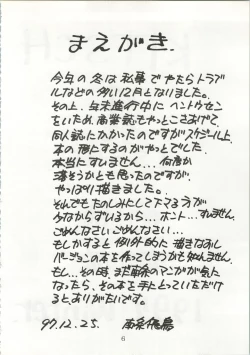 まえがき.
今年の冬は私事でやたらトラブ
ルなどの多い12月となりました。
その上、年末進行中にヘントウセン
をいため、商業誌もやっとこさあげて、
同人誌にかかったのですがスケジュール上、
本の形にするのがやっとでした。
本当にすいません... 何度か
落そうかとも思ったのですが、
やっぱり描きました。
それでもたのしみにして下さる方が
少なからずいるから... ホント... すいません。
ごめんなさいごめんなさい...
もしかすると例外的に描きなおし
バージョンの本を作ってしまうかも知れません。
もし...その時、まだ南条のマンガが気に
なったら、その本を手にとっていただけ
るとありがたいです。
97.12.25. 南条飛鳥
6